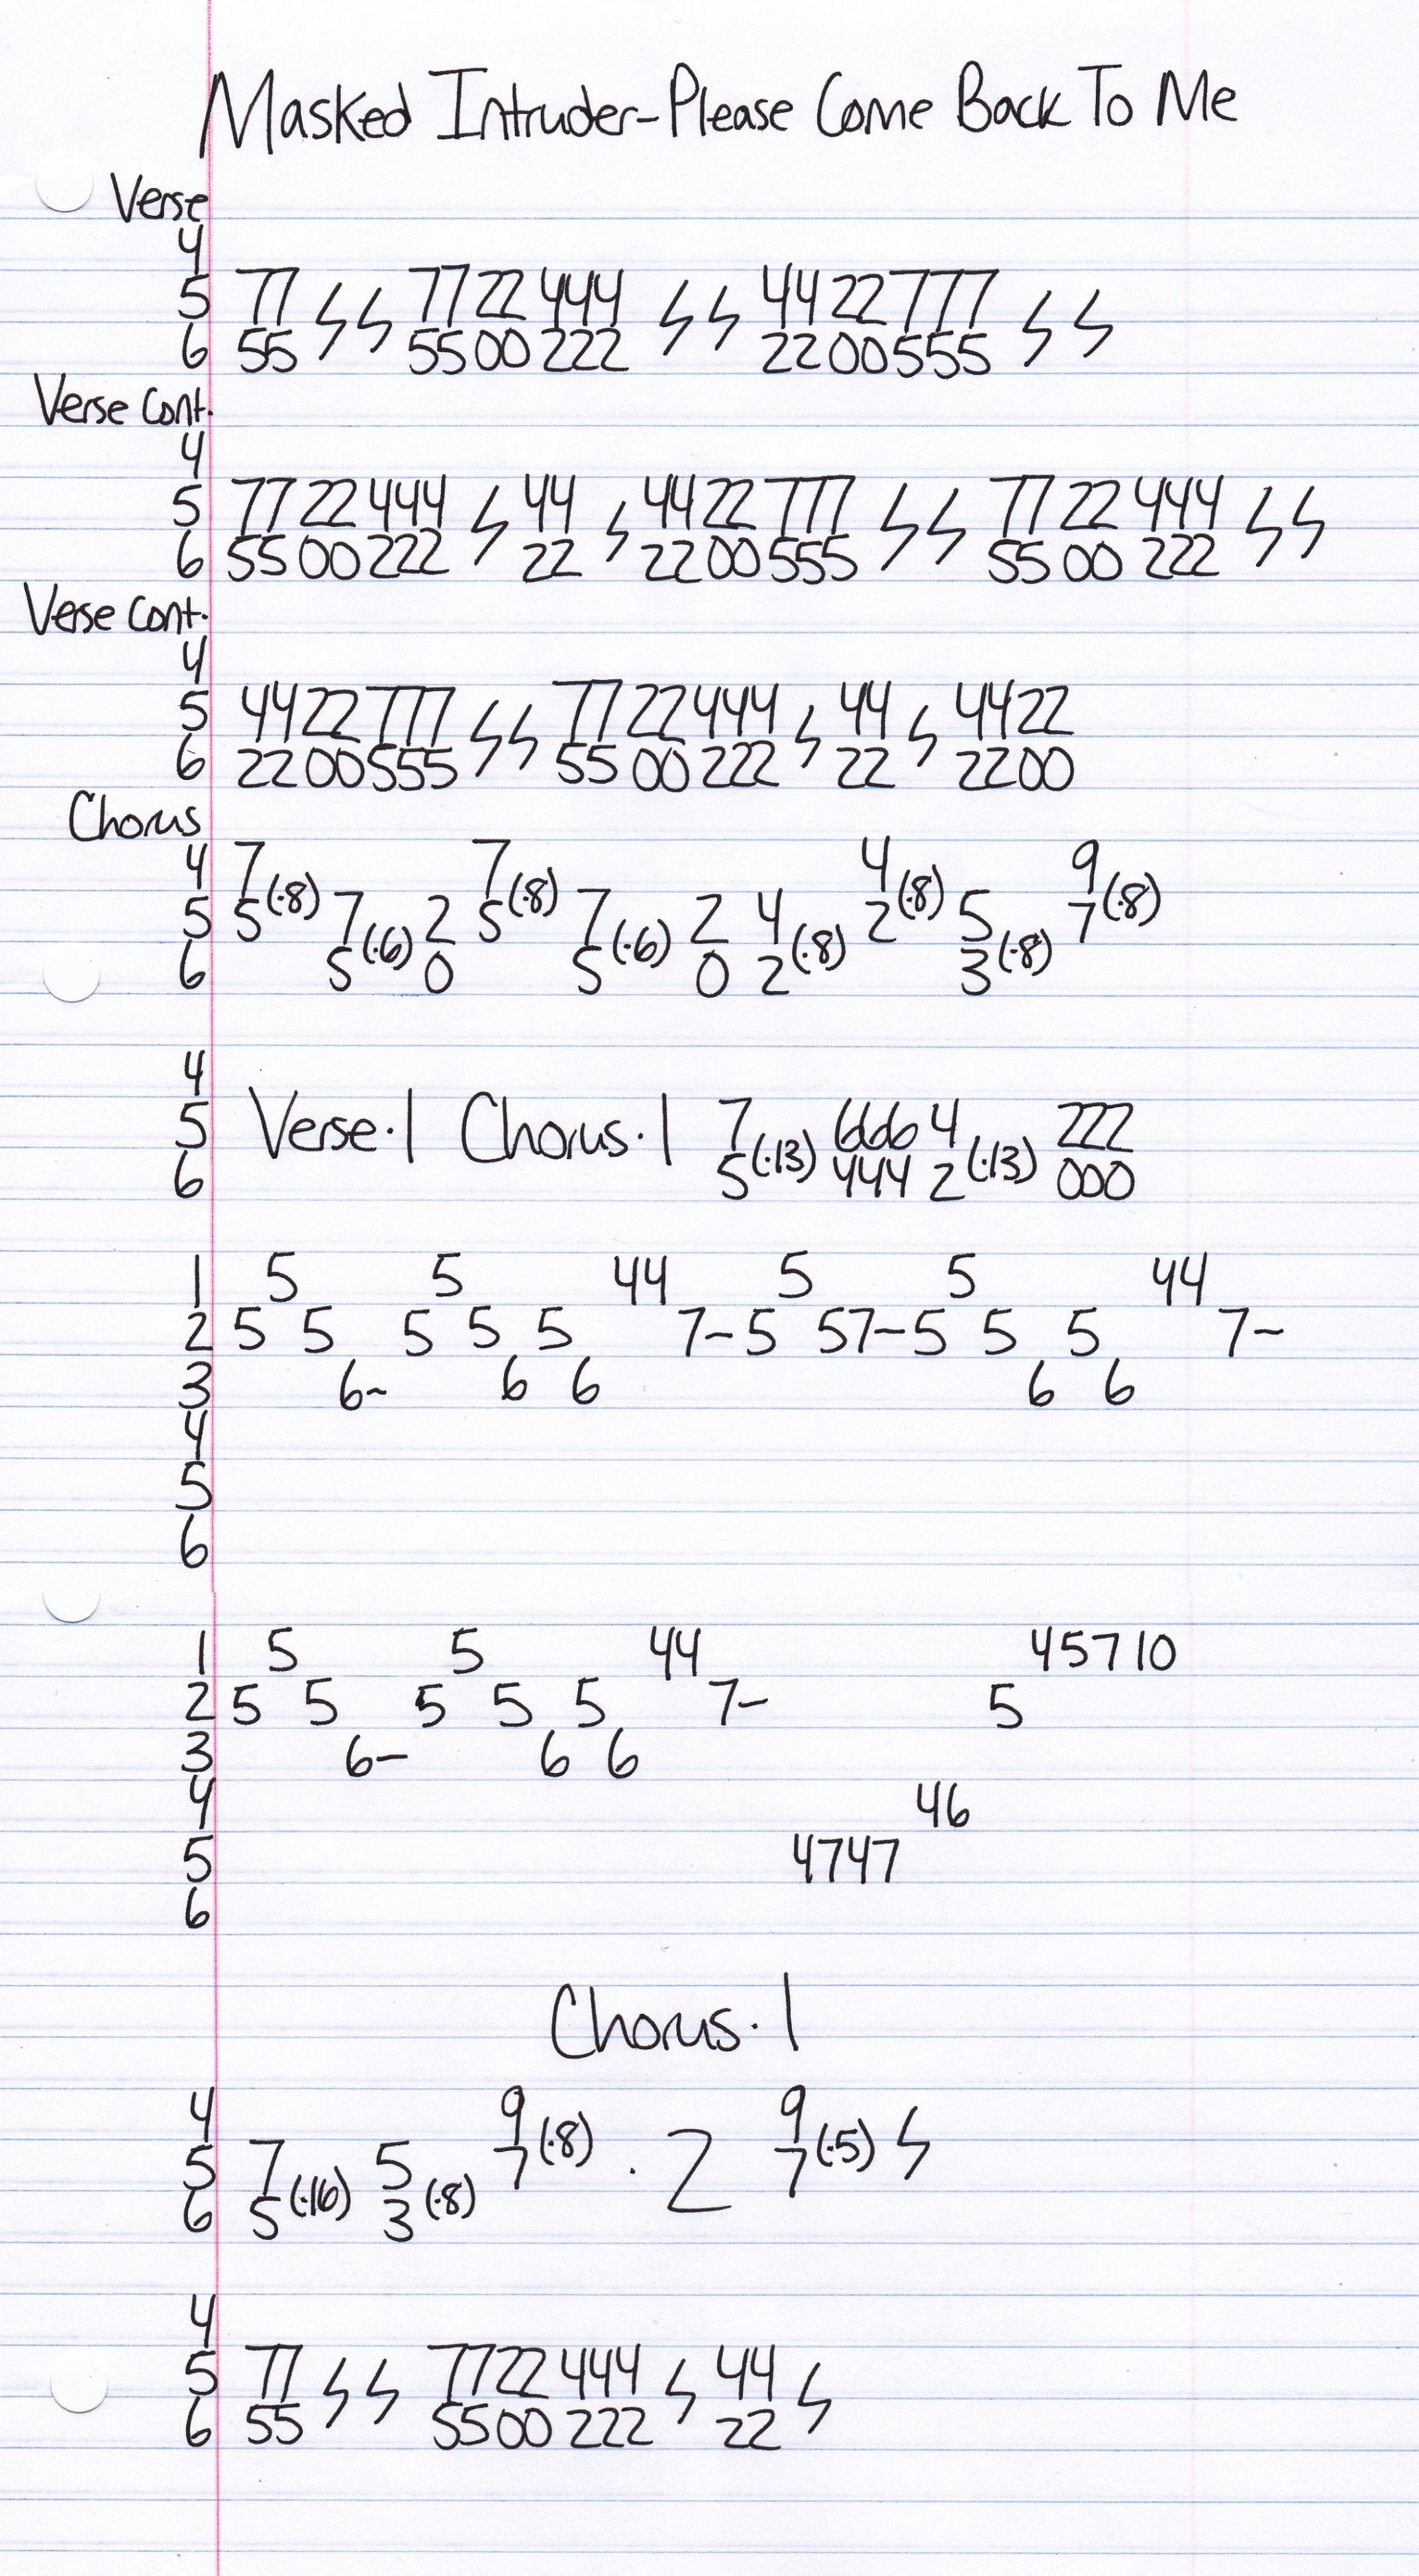 Masked Intruder-Please Come Back To Me
Verse
4
5 77 ϟ ϟ 7722 444 ϟ ϟ 4422777 ϟ ϟ
6 55 5500 222 2200555
Verse Cont.
4
5 7722444 ϟ 44 ϟ 4422 777 ϟ ϟ 77 22 444 ϟ ϟ
6 5500222 22 2200555 5500 222
Verse Cont.
4
5 4422777 ϟ ϟ 7722444 ϟ 44 ϟ 4422
6 2200555 5500222 22 2200
Chorus
4 7 7 4 9
5 5(·8) 7 2 5(·8) 7 2 4 2(·8) 5 7(·8)
6 5(·6) 0 5(·6) 0 2(·8) 3(·8)
4
5 Verse·1 Chorus·1 7 666 4 222
6 5(·13) 444 2(·13) 000
1 5 5 44 5 5 44
2 5 5 5 5 5 7-5 57-5 5 5 7-
3 6~ 6 6 6 6
4
5
6
1 5 5 44 45710
2 5 5 5 5 5 7- 5
3 6- 6 6
4 46
5 4747
6
Chorus·1
4 9 9
5 7 5 7(·8) · 2 7(·5) ϟ
6 5(·16) 3(·8)
4
5 77 ϟ ϟ 7722 444 ϟ 44 ϟ
6 55 5500 222 22